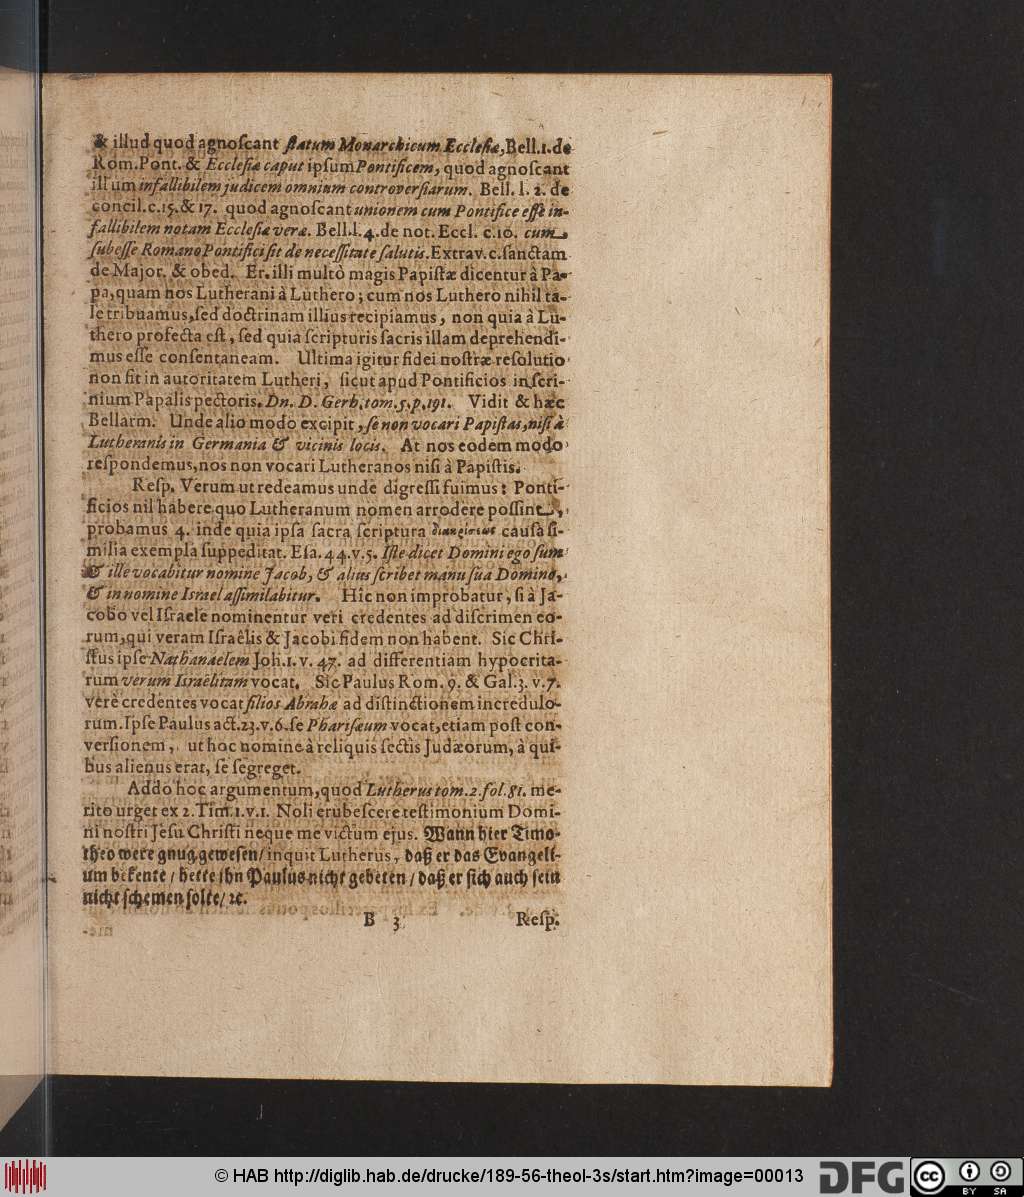 & illud quod agnoſcant ſtatum Monarchicum Eccleſiæ, Bell.1.de
Rom.Pont. & Eccleſiæ caput ipſum Pontificem, quod agnoſcant
illum infallibilem judicem omnium controverſiarum. Bell. l. 2. de
concil.c.15.& 17. quod agnoſcant unionem cum Pontifice eſſe in-
fallibilem notam Eccleſiæ veræ. Bell.l.4.de not. Eccl. c.10. cum
ſubeſſe Romano Pontifici ſit de neceſſitate ſalutis. Extrav.c.ſanctam
de Major. & obed. Er. illi multò magis Papiſtæ dicentur â Pa-
pa, quam nos Lutherani à Luthero; cum nos Luthero nihil ta-
le tribuamus, ſed doctrinam illius recipiamus, non quia à Lu-
thero profecta eſt, ſed quia ſcripturis ſacris illam deprehendi-
mus eſſe conſentaneam. Ultima igitur fidei noſtræ reſolutio
non fit in autoritatem Lutheri, ſicut apud Pontificios in ſcri-
nium Papalis pectoris. Dn. D. Gerh. tom. 5. p. 191. Vidit & hæc
Bellarm. Unde alio modo excipit, ſe non vocari Papiſtas, niſi à
Lutheranis in Germania & vicinis locis. At nos eodem modo
reſpondemus, nos non vocari Lutheranos niſi à Papiſtis.
Reſp. Verum ut redeamus unde digreſſi fuimus: Ponti-
ficios nil habere quo Lutheranum nomen arrodere poſſint,
probamus 4. inde quia ipſa ſacra ſcriptura διακρίσεως cauſâ ſi-
milia exempla ſuppeditat. Eſa. 44.v.5. Iſte dicet Domini ego ſum
& ille vocabitur nomine Jacob, & alius ſcribet manu ſua Domino,
& in nomine Israel aſſimilabitur. Hîc non improbatur, ſi â Ja-
cobo vel Iſraele nominentur veri credentes ad diſcrimen eo-
rum, qui veram Iſraêlis & Jacobi fidem non habent. Sic Chri-
ſtus ipſe Nathanaelem Joh.1. v. 47. ad differentiam hypocrita-
rum verum Israelitam vocat. Sic Paulus Rom. 9. & Gal.3. v.7.
verè credentes vocat filios Abrahæ ad diſtinctionem incredulo-
rum. Ipſe Paulus act.23.v.6.ſe Phariſæum vocat, etiam poſt con-
verſionem, ut hoc nomine à reliquis ſectis Judæorum, à qui-
bus alienus erat, ſe ſegreget.
Addo hoc argumentum, quod Lutherus tom.2.fol.81. me-
rito urget ex 2.Tim.1.v.1. Noli erubeſcere teſtimonium Domi-
ni noſtri Jeſu Chriſti neque me victum ejus. Wann hier Timo-
theo were gnug geweſen/ inquit Lutherus, daß er das Evangeli-
um bekente / hette ihn Paulus nicht gebeten / daß er ſich auch ſein
nicht ſchemen ſolte/ ꝛc.
B 3 Reſp.
© HAB http://diglib.hab.de/drucke/189-56-theol-3s/start.htm?image=00013
DFG
cc BY SA